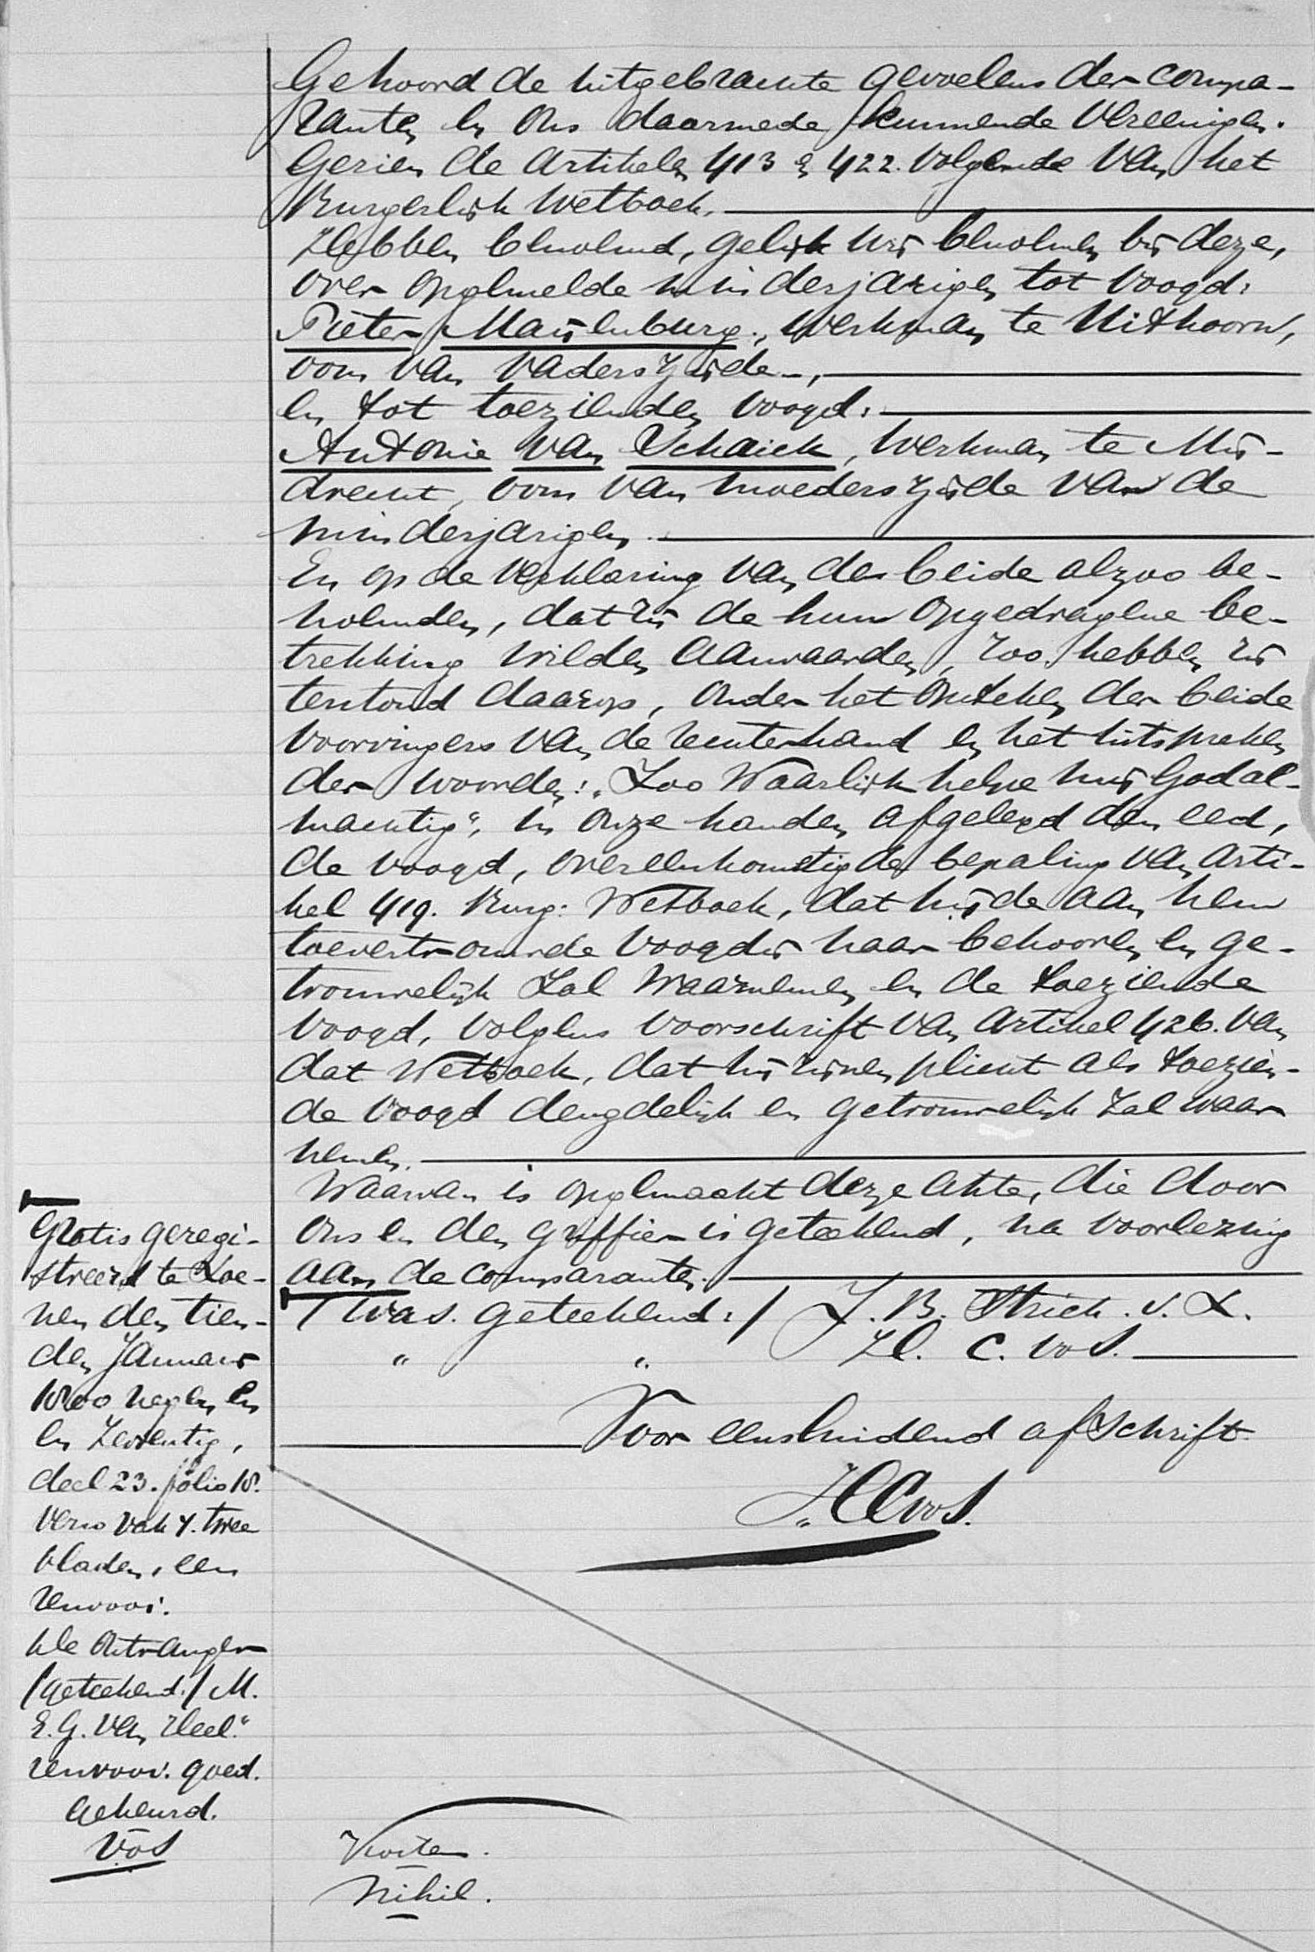 Gehoord de uitgebrachte gevoelens der compa-
ranten en ons daarmede kunnende vereenigen.
Gezien de artikelen 413 & 422. volgende van het
Burgerlijk Wetboek.
Hebben benoemd, gelijk wij benoemen bij deze,
over opgemelde minderjarigen tot voogd:
Pieter Maijenburg, werkman te Uithoorn,
oom van vaderszijde,
en tot toezienden voogd:
Antonie van Schaick, werkman te Mij-
drecht, oom van moederszijde van de
minderjarigen.
En op de verklaring van de beide alzoo be-
noemden, dat zij de hun opgedragene be-
trekking wilden aanvaarden, zoo hebben zij
terstond daarop, onder het opsteken der beide
voorvingers van de rechterhand en het uitspreken
der woorden: "Zoo waarlijk helpe mij God al-
machtig", in onze handen afgelegd den eed,
de voogd, overeenkomstig de bepaling van arti-
kel 419. Burg: Wetboek, dat hij de aan hem
toevertrouwde voogdij naar behooren en ge-
trouwelijk zal waarnemen en de toeziende
voogd, volgens voorschrift van artikel 426. van
dat Wetboek, dat hij zijnen plicht als toezien-
de voogd deugdelijk en getrouwelijk zal waar
nemen.
Waarvan is opgemaakt deze akte, die door
ons en den griffier is geteekend, na voorlezing
aan de comparanten.
/was geteekend:/ J. B. Strick. v. L.
" " H. C. Vos.
Voor eensluidend afschrift
HCVos.
Gratis geregi-
streerd te Loe-
nen den tien-
den Januari
1800 negen en
en zeventig,
deel 23. folio 18.
verso vak 4. twee
bladen, een
renvooi.
De Ontvanger
/geteekend:/ M.
E. G. van Heel."
renvooi. goed.
gekeurd.
Vos
Kosten.
Nihil.